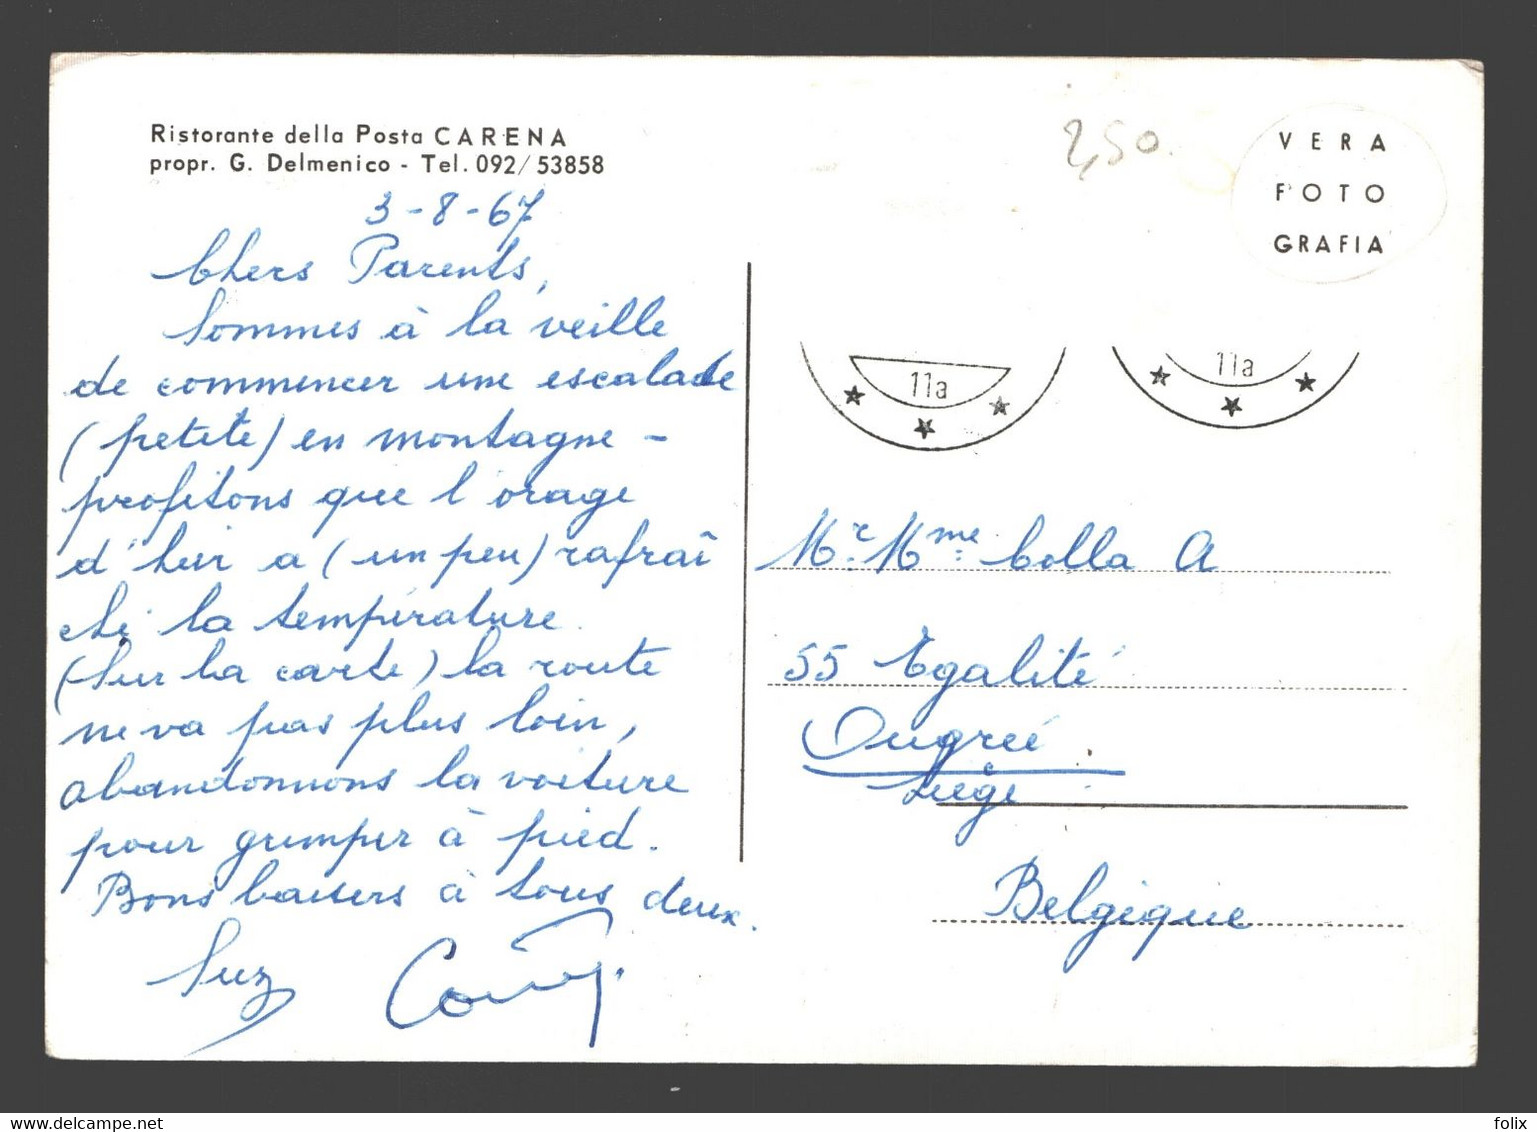 Ristorante della Posta CARENA
propr. G. Delmenico - Tel. 092/ 53858
3-8-67
Chers Parents,
Sommes à la veille
de commencer une escalade
(petite) en montagne -
profitons que l'orage
d'hier a (un peu) rafraî
chi la température.
(sur la carte) la route
ne va pas plus loin,
abandonnons la voiture
pour grimper à pied.
Bons baisers à tous deux.
Suz
2,50
VERA
FOTO
GRAFIA
11a
11a
Mr. Mme. Colla A
55 Egalité
Ougreé
Liège
Belgique
delcampe.net
folix